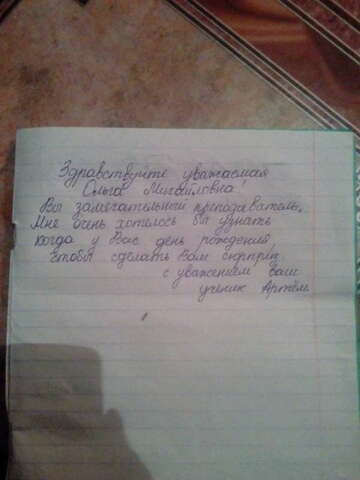 Здравствуйте уважаемая
Ольга Михайловна!
Вы замечательный преподаватель.
Мне очень хотелось бы узнать
когда у Вас день рождения,
чтобы сделать вам сюрприз.
с уважением ваш
ученик Артём